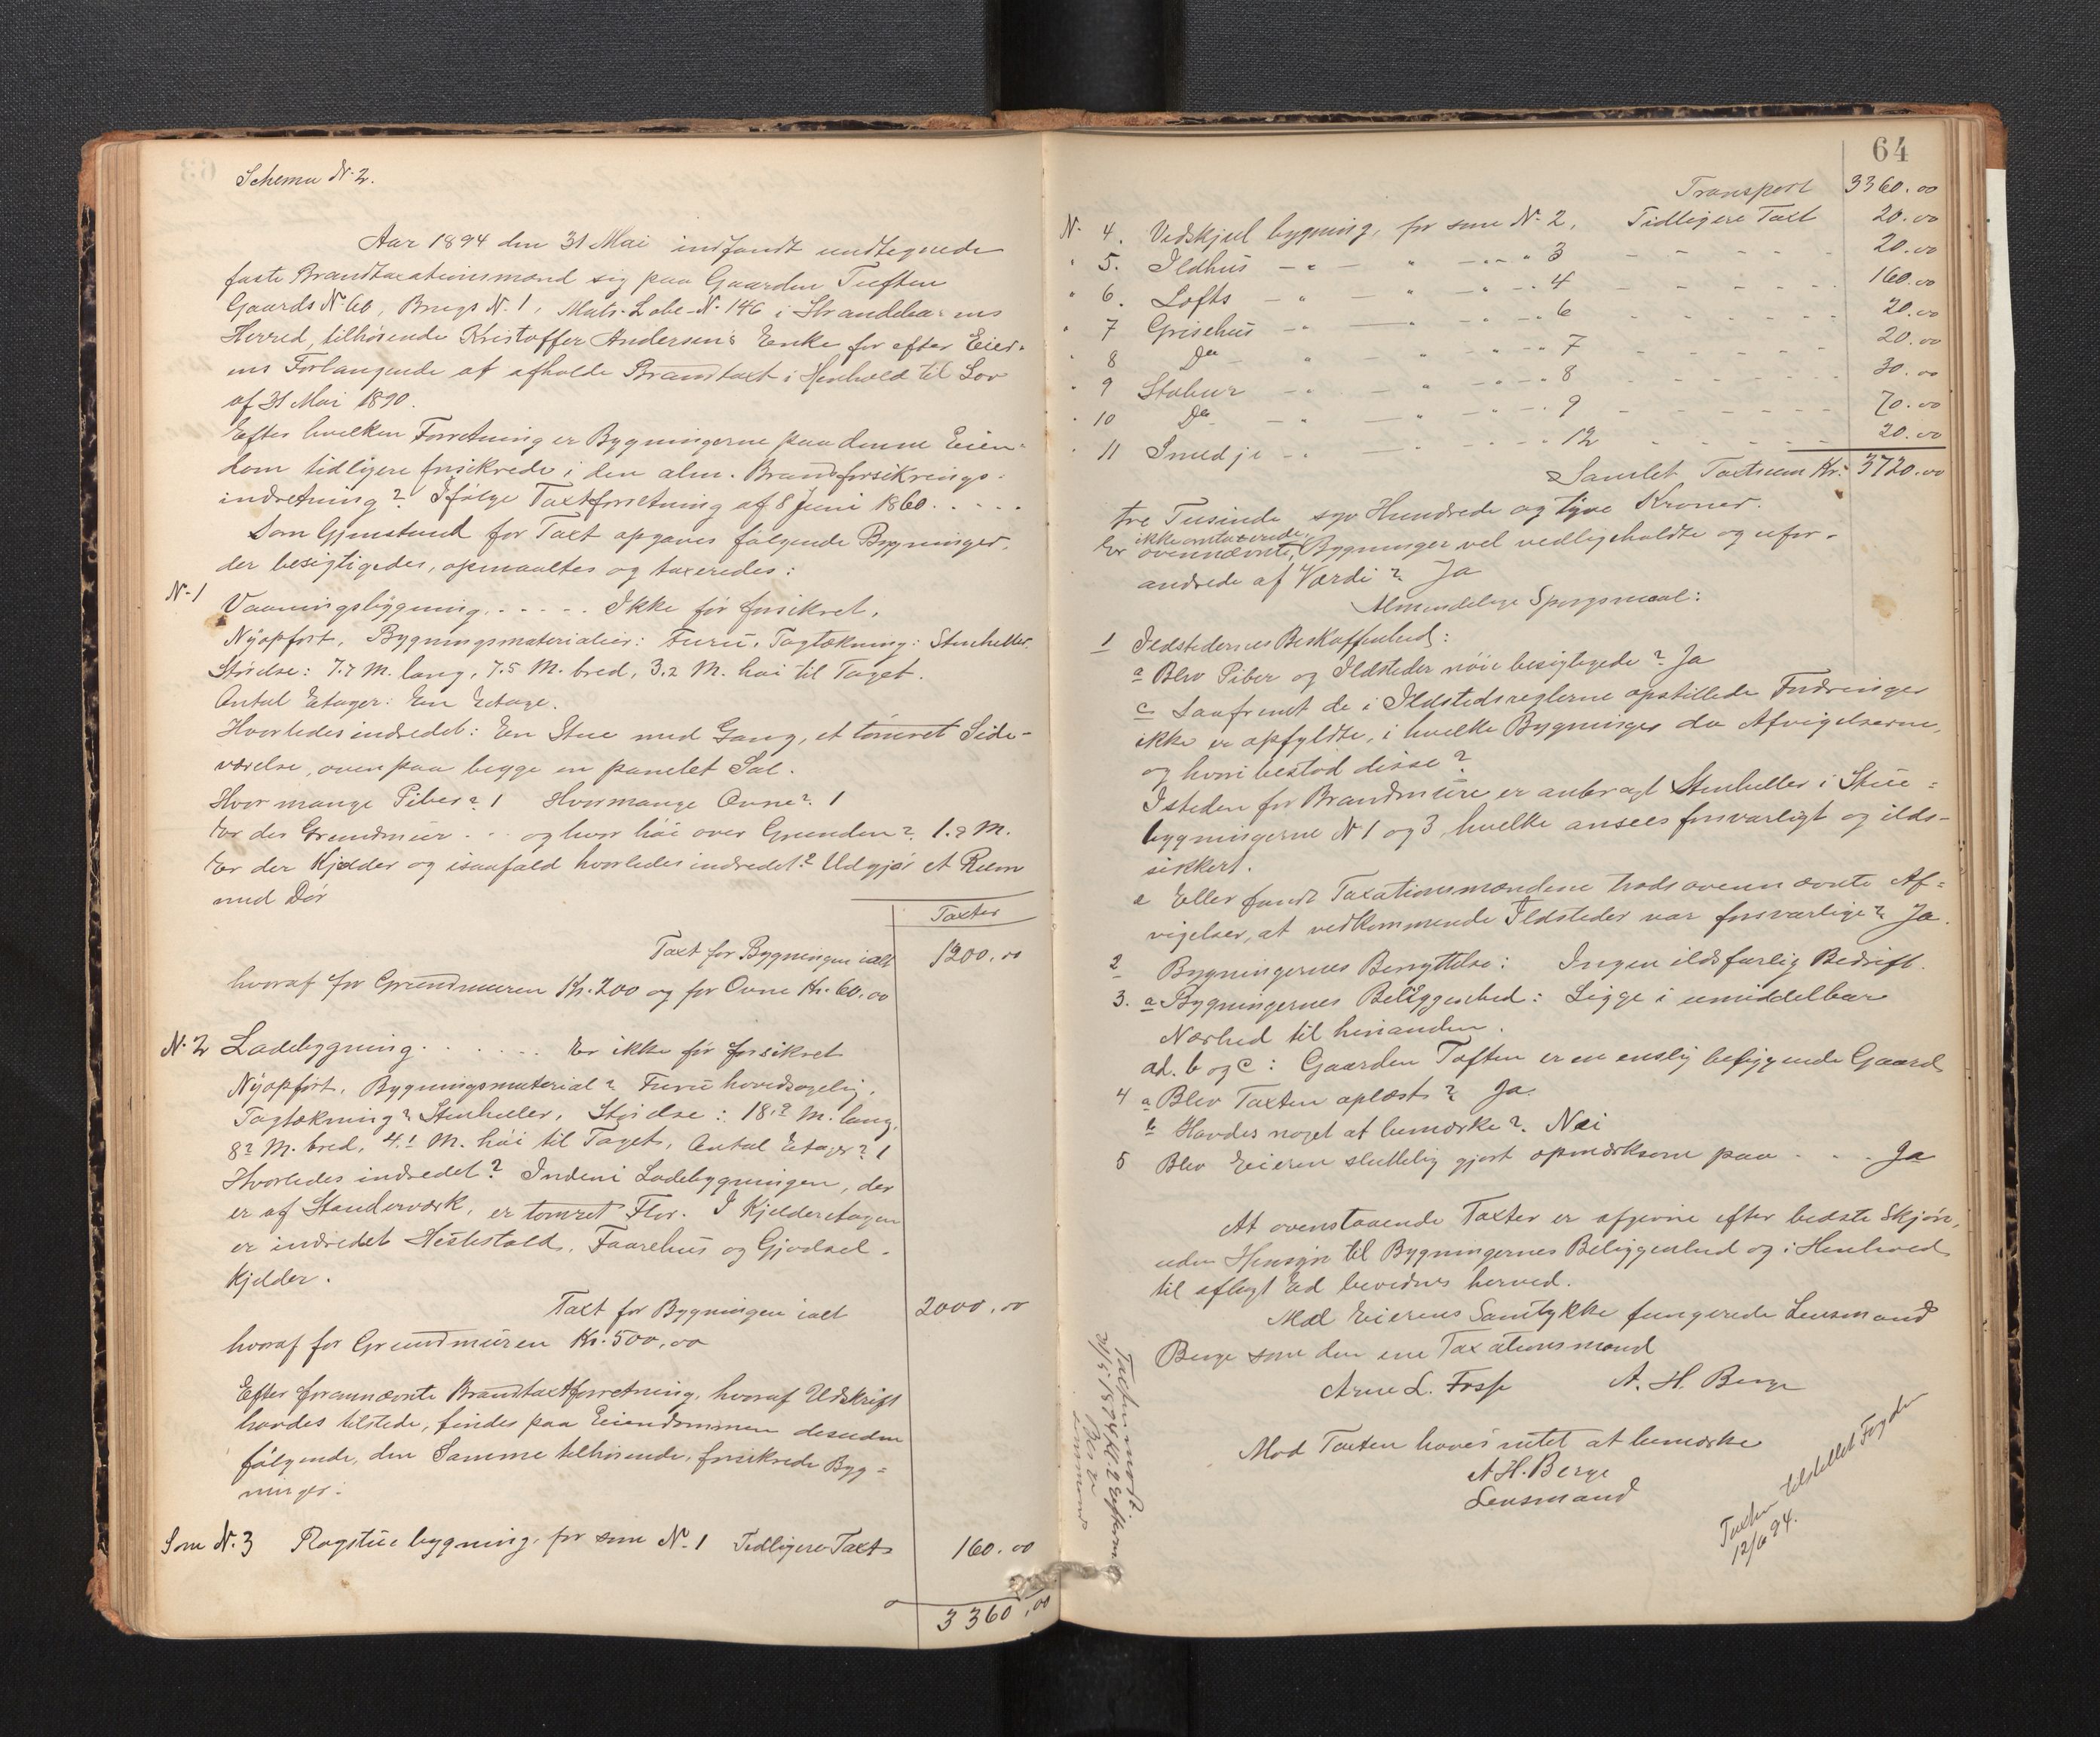 Schema N. 2.
Aar 1894 den 31 Mai indfandt undtegnede
faste Brandtaxationsmænd sig paa Gaarden Tuften
Gaards N. 60, Brugs N. 1, Matr. Løbe-N. 146 i Strandebarms
Herred, tilhørende Kristoffer Andersens Enke for efter Eier-
ens Forlangende at afholde Brandtaxt i Henhold til Lov
af 31 Mai 1890.
Efter hvilken Forretning er Bygningerne paa denne Eien-
dom tidligere forsikrede i den alm. Brandforsikrings-
indretning? Ifølge Taxtforretning af 8 Juni 1860. . . . .
Som Gjenstand for Taxt opgaves følgende Bygninger,
der besigtigedes, opmaaltes og taxeredes:
N. 1 Vaaningsbygning. . . . . . Ikke før forsikret.
Nyopført. Bygningsmaterialier: Furu, Tagtækning: Stenheller.
Størelse: 7.7 M. lang, 7.5 M. bred, 3.2 M. høi til Taget.
Antal Etager: En Etage.
Hvorledes indredet: En Stue med Gang, et tømret Side-
værelse, ovenpaa begge en panelet Sal.
Hvor mange Piber? 1 Hvormange Ovne? 1
Er der Grundmur . . . og hvor høi over Grunden? 1.2 M.
Er der Kjelder og isaafald hvorledes indredet? Udgjør et Rum
med Dør
Taxter
Taxt for Bygningen ialt 1200,00
hvoraf for Grundmuren Kr. 200 og for Ovne Kr. 60,00
N. 2 Ladebygning. . . . . . . Er ikke før forsikret
Nyopført. Bygningsmaterial? Furu hovedsagelig.
Tagtækning? Stenheller. Størelse: 18.2 M. lang,
8.2 M. bred, 4.1 M. høi til Taget. Antal Etager? 1
Hvorledes indredet? Indeni Ladebygningen, der
er af Standerværk, er tømret Flor. I Kjelderetagen
er indredet Hestestald, Faarehus og Gjødsel-
kjelder.
Taxt for Bygningen ialt 2000,00
hvoraf for Grundmuren Kr. 500,00
Efter forannævnte Brandtaxtforretning, hvoraf Udskrift
havdes tilstede, findes paa Eiendommen desuden
følgende, den Samme tilhørende, forsikrede Byg-
ninger.
Som N. 3 Røgstuebygning, før som N. 1 Tidligere Taxt 160.00
3360,00
64
Transport 3360.00
N. 4. Vedskjul bygning, før som N. 2, Tidligere Taxt 20.00
" 5. Ildhus - " - " - " - " 3 - - - - - 20.00
" 6. Lofts - " - " - " - " 4 - - - - - 160.00
" 7 Grisehus - " - " - " - " 6 - - - - - 20.00
" 8 Do - " - " - " - " 7 - - - - - 20.00
" 9 Stabur - " - " - " - " 8 - - - - - 30.00
" 10 Do - " - " - " - " 9 - - - - - 70.00
" 11 Smedje - " - " - " - " 12 - - - - - 20.00
Samlet Taxtsum Kr. 3720.00
tre Tusinde syv Hundrede og tyve Kroner.
ikke omtaxerede,
Er ovennævnte, Bygninger vel vedligeholdte og ufor-
andrede af Værdi? Ja
Almindelige Spørgsmaal:
1 Ildstedernes Beskaffenhed:
a Blev Piber og Ildsteder nøie besigtigede? Ja
c Saafremt de i Ildstedsreglerne opstillede Fordringer
ikke er opfyldte, i hvilke Bygninger da Afvigelserne,
og hvori bestod disse?
Isteden for Brandmure er anbragt Stenheller i Stue-
bygningerne N 1 og 3, hvilke ansees forsvarligt og ild-
sikkert.
e Eller fandt Taxationsmændene trods ovennævnte Af-
vigelser, at vedkommende Ildsteder var forsvarlige? Ja.
2 Bygningernes Benyttelse: Ingen ildsfarlig Bedrift.
3. a Bygningernes Beliggenhed: Ligge i umiddelbar
Nærhed til hinanden.
ad. b og c: Gaarden Tuften er en enslig beliggende Gaard
4 a Blev Taxten oplæst? Ja.
b Havdes noget at bemærke? Nei
5 Blev Eieren sluttelig gjort opmærksom paa . . . Ja
At ovenstaaende Taxter er afgivne efter bedste Skjøn,
uden Hensyn til Bygningernes Beliggenhed og i Henhold
til aflagt Ed bevidnes herved.
Med Eierens Samtykke fungerede Lensmand
Berge som den ene Taxationsmand
Arne L. Fosse A. H. Berge
Mod Taxten haves intet at bemærke
A H. Berge
Lensmand
Taxten tilstillet Fogden
12/6 94.
Taxten modt.
1894 Kl. 2 Efterm
Berge
Lensmand